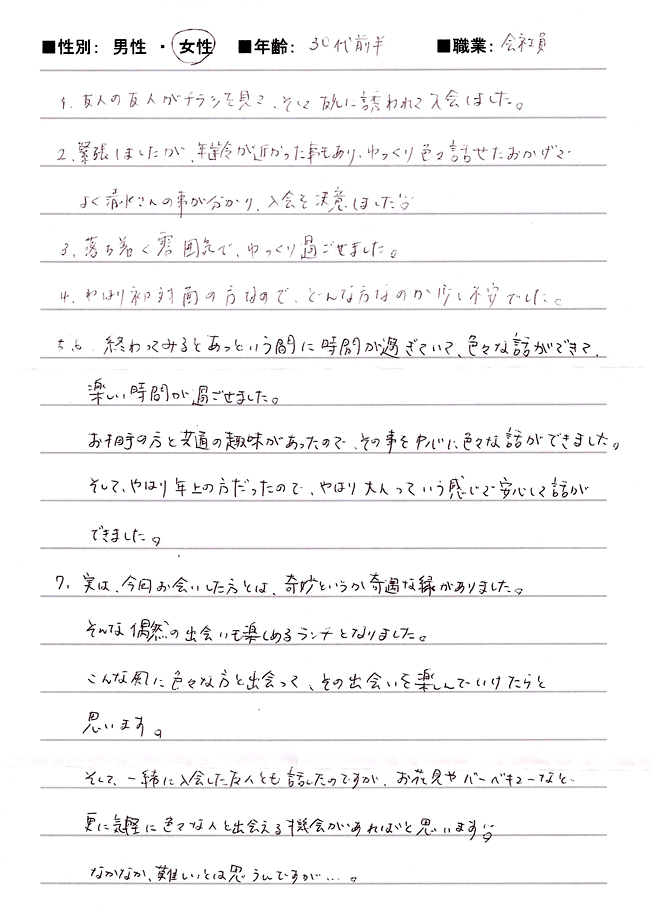 ■性別： 男性 ・ 女性 ■年齢： 30代前半 ■職業： 会社員
1. 友人の友人がチラシを見て、そして私に誘われて入会しました。
2. 緊張しましたが、年齢が近かった事もあり、ゆっくり色々話せたおかげで
よく清水さんの事が分かり、入会を決意しました
3. 落ち着く雰囲気で、ゆっくり過ごせました。
4. やはり初対面の方なので、どんな方なのか少し不安でした。
5,6. 終わってみるとあっという間に時間が過ぎていて、色々な話ができて、
楽しい時間が過ごせました。
お相手の方と共通の趣味があったので、その事を中心に色々な話ができました。
そして、やはり年上の方だったので、やはり大人っていう感じで安心して話が
できました。
7. 実は、今回お会いした方とは、奇妙というか奇遇な縁がありました。
そんな偶然の出会いも楽しめるランチとなりました。
こんな風に色々な方と出会って、その出会いを楽しんでいけたらと
思います。
そして、一緒に入会した友人とも話したのですが、お花見やバーベキューなど
更に気軽に色々な人と出会える機会があればと思います
なかなか、難しいとは思うんですが…。